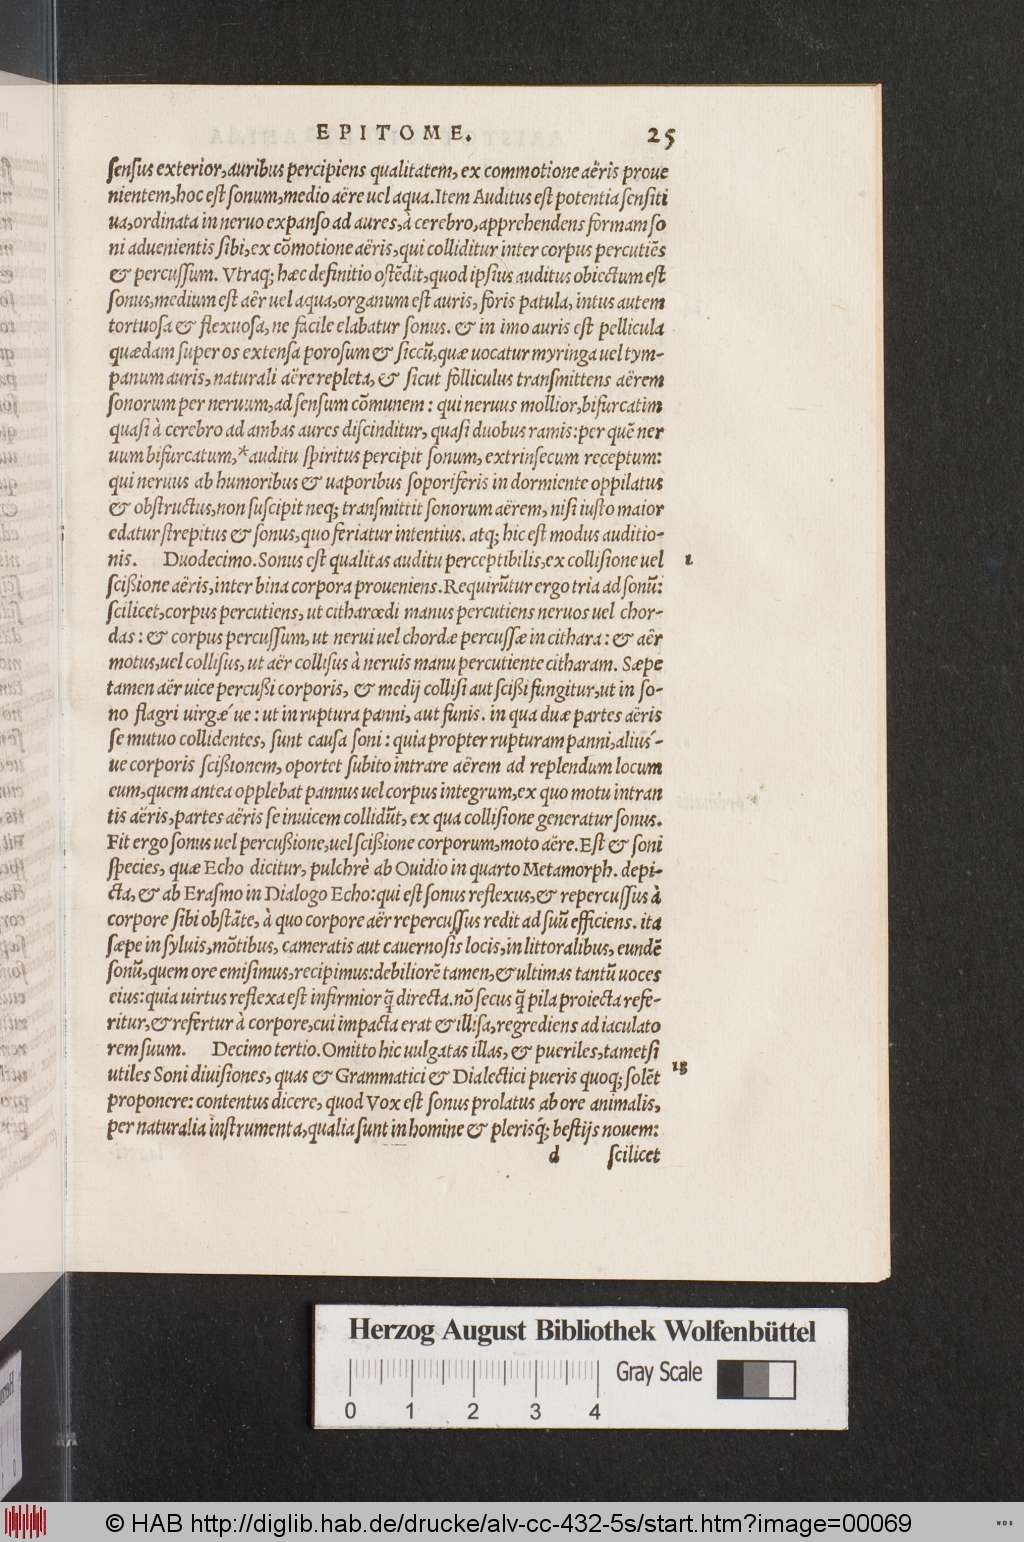 EPITOME. 25
ſenſus exterior, auribus percipiens qualitatem, ex commotione aëris proue
nientem, hoc eſt ſonum, medio aëre uel aqua. Item Auditus eſt potentia ſenſiti
ua, ordinata in neruo expanſo ad aures, à cerebro, apprehendens formam ſo
ni aduenientis ſibi, ex cõmotione aëris, qui colliditur inter corpus percutiẽs
& percuſſum. Vtraq; hæc definitio oſtẽdit, quod ipſius auditus obiectum eſt
ſonus, medium eſt aër uel aqua, organum eſt auris, foris patula, intus autem
tortuoſa & flexuoſa, ne facile elabatur ſonus. & in imo auris eſt pellicula
quædam ſuper os extenſa poroſum & ſiccũ, quæ uocatur myringa uel tym-
panum auris, naturali aëre repleta, & ſicut folliculus tranſmittens aërem
ſonorum per neruum, ad ſenſum cõmunem: qui neruus mollior, bifurcatim
quaſi à cerebro ad ambas aures diſcinditur, quaſi duobus ramis: per quẽ ner
uum bifurcatum,* auditu ſpiritus percipit ſonum, extrinſecum receptum:
qui neruus ab humoribus & uaporibus ſoporiferis in dormiente oppilatus
& obſtructus, non ſuſcipit neq; tranſmittit ſonorum aërem, niſi iuſto maior
edatur ſtrepitus & ſonus, quo feriatur intentius. atq; hic eſt modus auditio-
nis. Duodecimo. Sonus eſt qualitas auditu perceptibilis, ex colliſione uel
ſcißione aëris, inter bina corpora proueniens. Requirũtur ergo tria ad ſonũ:
ſcilicet, corpus percutiens, ut citharœdi manus percutiens neruos uel chor-
das: & corpus percuſſum, ut nerui uel chordæ percuſſæ in cithara: & aër
motus, uel colliſus, ut aër colliſus à neruis manu percutiente citharam. Sæpe
tamen aër uice percußi corporis, & medij colliſi aut ſcißi fungitur, ut in ſo-
no flagri uirgæ´ue: ut in ruptura panni, aut funis. in qua duæ partes aëris
ſe mutuo collidentes, ſunt cauſa ſoni: quia propter rupturam panni, alius´-
ue corporis ſcißionem, oportet ſubito intrare aërem ad replendum locum
eum, quem antea opplebat pannus uel corpus integrum, ex quo motu intran
tis aëris, partes aëris ſe inuicem collidũt, ex qua colliſione generatur ſonus.
Fit ergo ſonus uel percußione, uel ſcißione corporum, moto aëre. Eſt & ſoni
ſpecies, quæ Echo dicitur, pulchrè ab Ouidio in quarto Metamorph. depi-
cta, & ab Eraſmo in Dialogo Echo: qui eſt ſonus reflexus, & repercuſſus à
corpore ſibi obſtãte, à quo corpore aër repercuſſus redit ad ſuũ efficiens. ita
ſæpe in ſyluis, mõtibus, cameratis aut cauernoſis locis, in littoralibus, eundẽ
ſonũ, quem ore emiſimus, recipimus: debiliorẽ tamen, & ultimas tantũ uoces
eius: quia uirtus reflexa eſt infirmior q̃ directa. nõ ſecus q̃ pila proiecta refe-
ritur, & refertur à corpore, cui impacta erat & illiſa, regrediens ad iaculato
rem ſuum. Decimo tertio. Omitto hic uulgatas illas, & pueriles, tametſi
utiles Soni diuiſiones, quas & Grammatici & Dialectici pueris quoq; ſolẽt
proponere: contentus dicere, quod Vox eſt ſonus prolatus ab ore animalis,
per naturalia inſtrumenta, qualia ſunt in homine & plerisq́; beſtijs nouem:
d ſcilicet
1
13
Herzog August Bibliothek Wolfenbüttel
Gray Scale
0 1 2 3 4
© HAB http://diglib.hab.de/drucke/alv-cc-432-5s/start.htm?image=00069
WDB